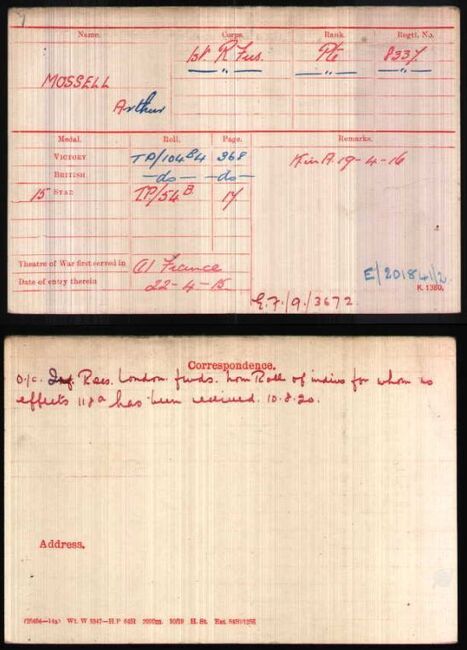 Name. Corps. Rank. Regtl. No.
1st R Fus. Pte 8337
" " "
MOSSELL
Arthur
Medal. Roll. Page. Remarks.
VICTORY TP/104B4 368 K in A. 19-4-16
BRITISH -do- -do-
15 STAR TP/54B 17
Theatre of War first served in (1) France
Date of entry therein 22-4-15
E/20184/2
K. 1380.
E.F./9/3672
Correspondence.
O.i/c. Inf. Recs. London. fwds. nom Roll of indivs for whom no
effects 118a has been received. 10.8.20.
Address.